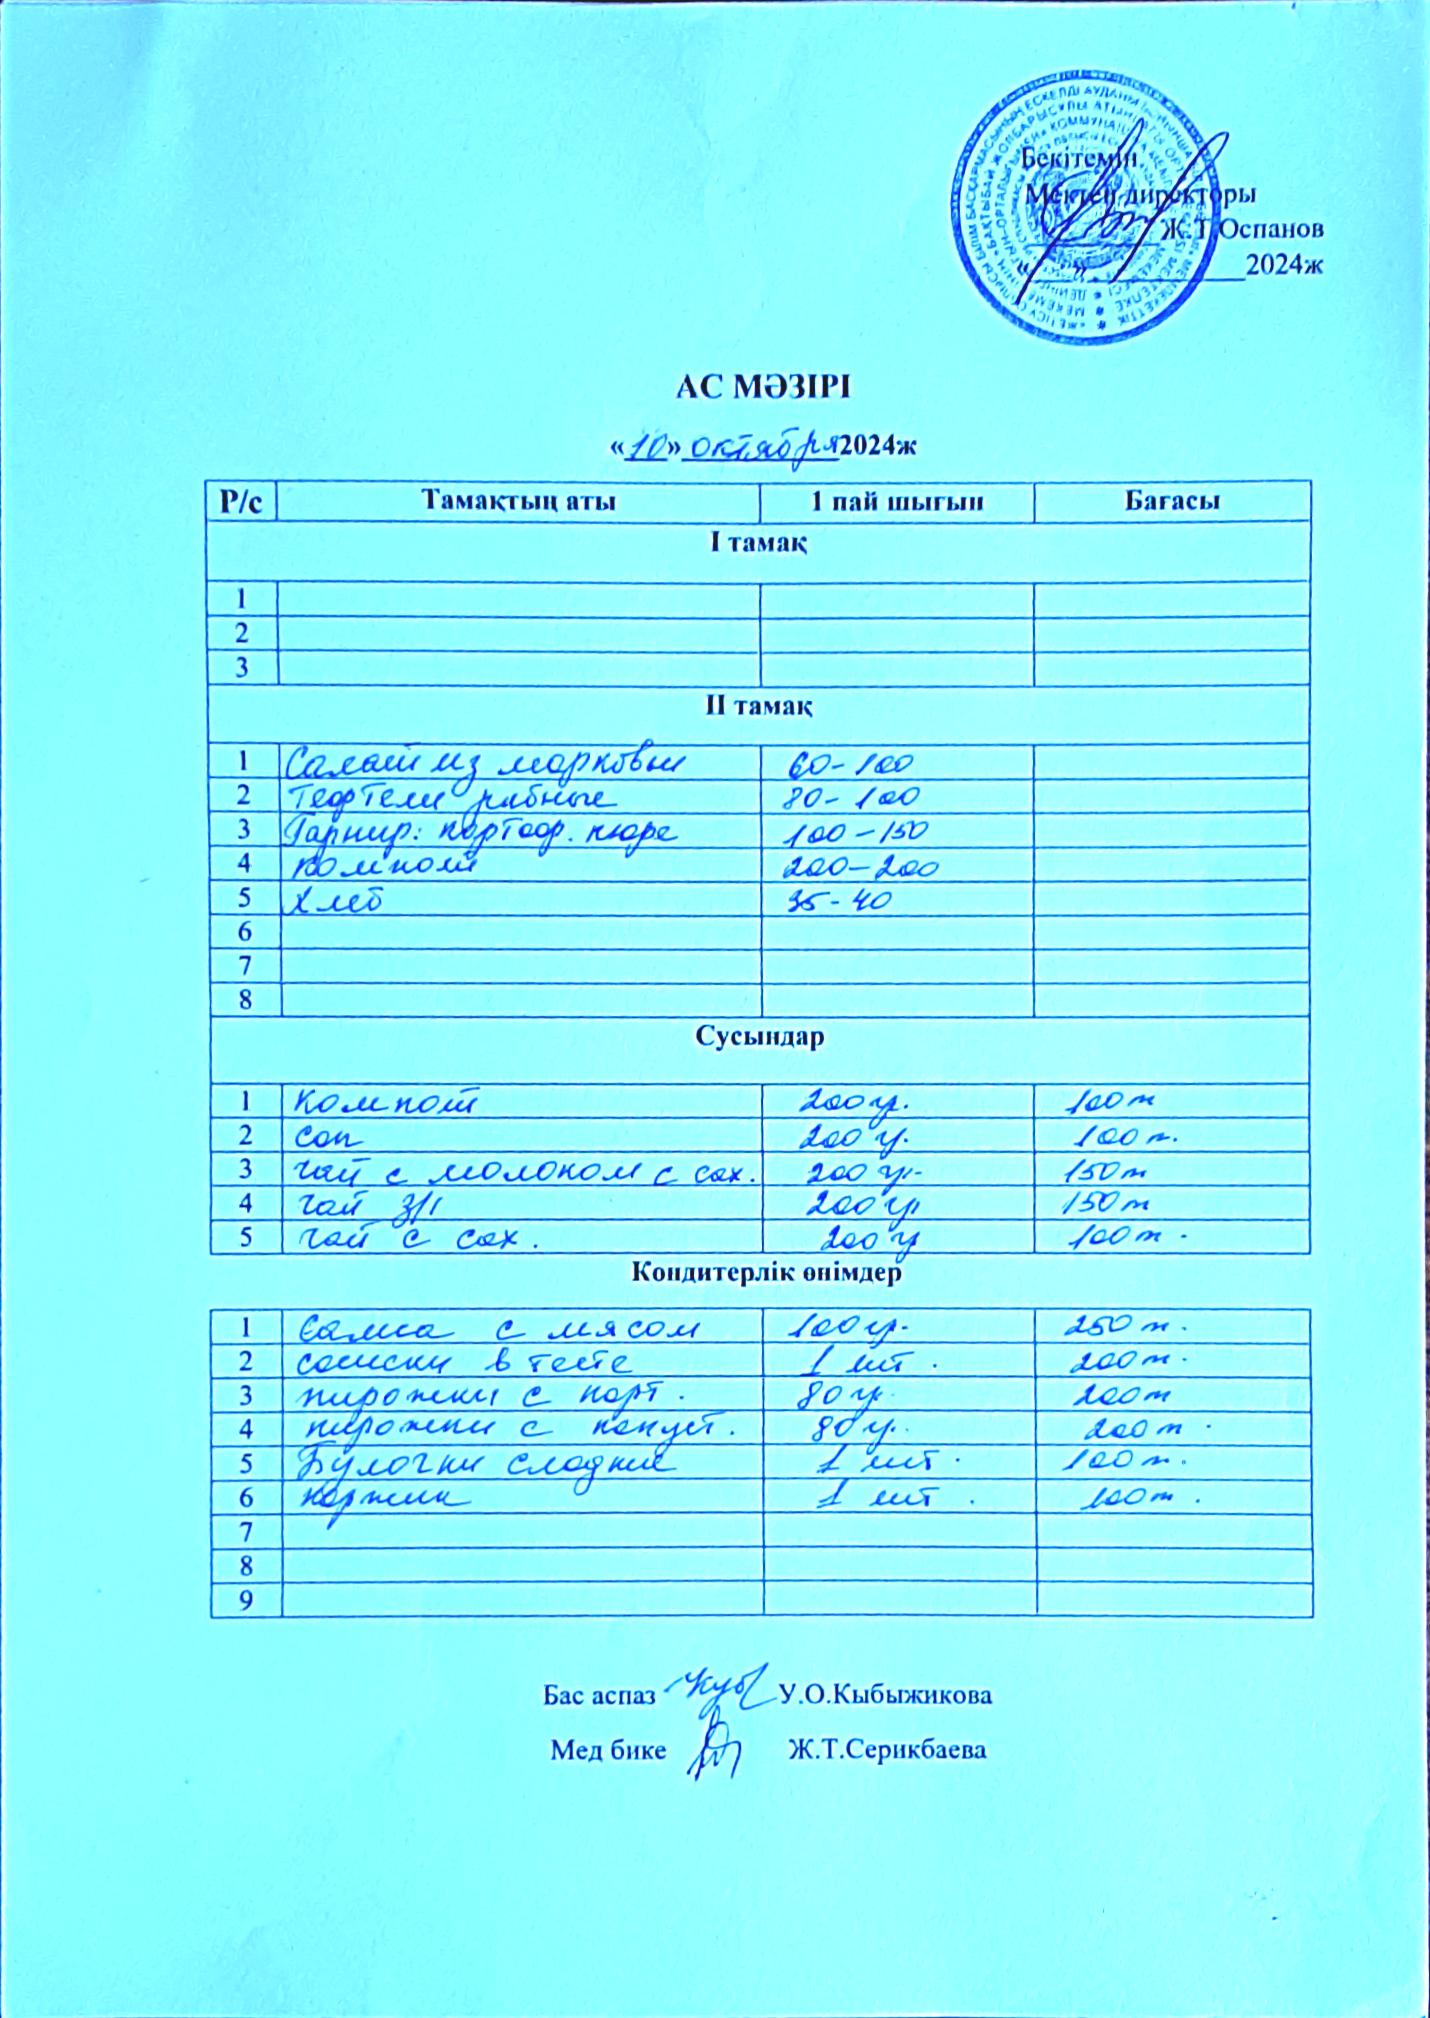 Бекітемін
Мектеп директоры
Ж.Т.Оспанов
«___»___________2024ж
АС МӘЗІРІ
«10» октября 2024ж
Р/с Тамақтың аты 1 пай шығын Бағасы
І тамақ
1
2
3
ІІ тамақ
1 Салат из морковы 60-100
2 Тефтели рыбные 80-100
3 Гарнир: картоф. пюре 100-150
4 Компот 200-200
5 Хлеб 35-40
6
7
8
Сусындар
1 Компот 200 гр. 100 т
2 сок 200 гр. 100 т.
3 чай с молоком с сах. 200 гр. 150 т
4 чай 200 гр 150 т
5 чай с сах. 200 гр 100 т.
Кондитерлік өнімдер
1 Самса с мясом 100 гр. 250 т.
2 сосиски в тесте 1 шт. 200 т.
3 пирожки с карт. 80 гр. 200 т
4 пирожки с капуст. 80 гр. 200 т.
5 Булочки сладкие 1 шт. 100 т.
6 коржик 1 шт. 100 т.
7
8
9
Бас аспаз У.О.Кыбыжикова
Мед бике Ж.Т.Серикбаева